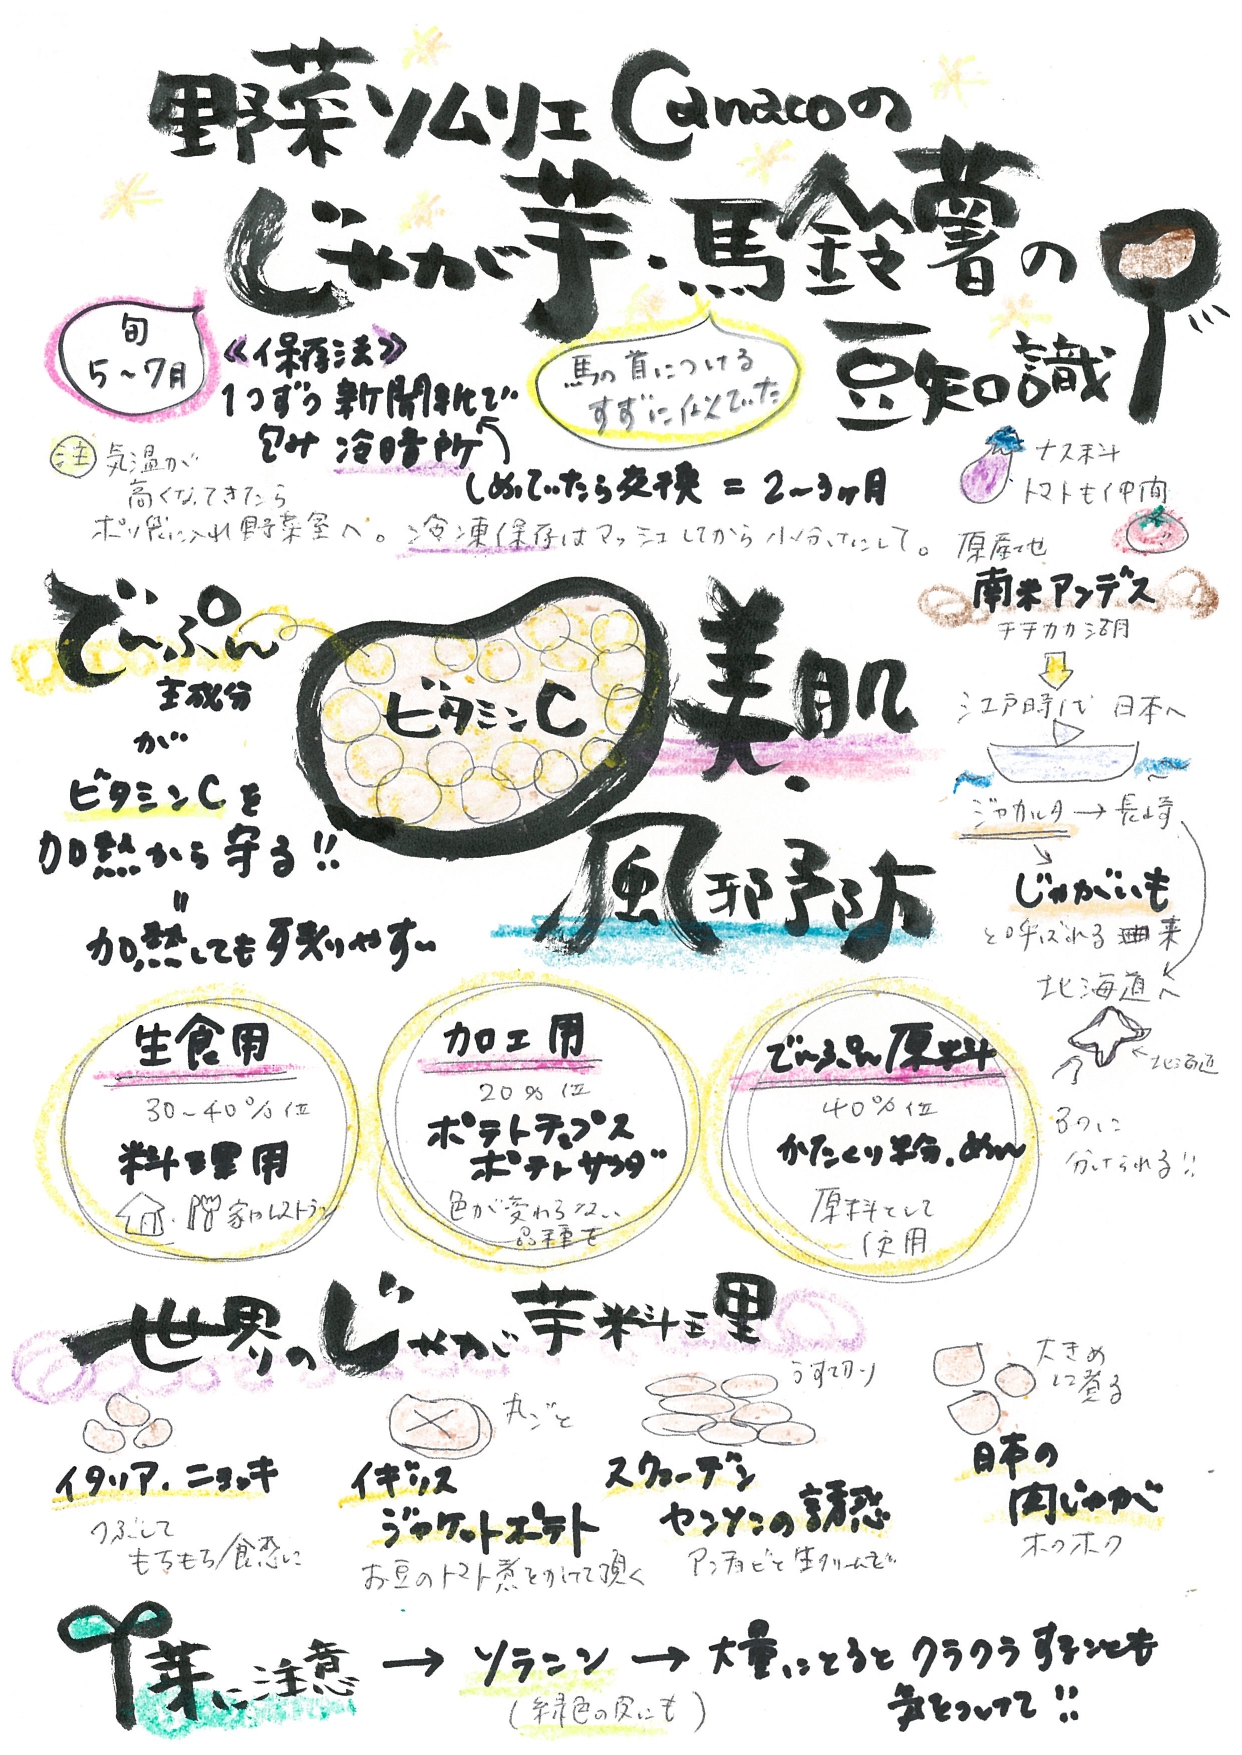 野菜ソムリエCanacoの
じゃが芋・馬鈴薯の
豆知識
旬
5〜7月
《保存法》
1つずつ新聞紙で
包み 冷暗所
しめっていたら交換 = 2〜3ヶ月
馬の首につける
すずに似ていた
注 気温が
高くなってきたら
ポリ袋に入れ野菜室へ。冷凍保存はマッシュしてから小分けにして。
ナス科
トマトも仲間
原産地
南米アンデス
チチカカ湖
江戸時代 日本へ
ジャカルタ→長崎
じゃがいも
と呼ばれる由来
北海道へ
北海道
3つに
分けられる!!
でんぷん
主成分
が
ビタミンCを
加熱から守る!!
=
加熱しても残りやすい
ビタミンC
美肌
・
風邪予防
生食用
30〜40%位
料理用
家やレストラン
加工用
20%位
ポテトチップス
ポテトサラダ
色が変わらない
品種を
でんぷん原料
40%位
かたくり粉・めん
原料として
使用
世界のじゃが芋料理
イタリア・ニョッキ
つぶして
もちもち食感に
丸ごと
イギリス
ジャケットポテト
お豆のトマト煮をかけて頂く
うす切り
スウェーデン
ヤンソンの誘惑
アンチョビと生クリームで
大きめ
に煮る
日本の
肉じゃが
ホクホク
芽に注意 → ソラニン → 大量にとるとクラクラすることも
(緑色の皮にも)
気をつけて!!